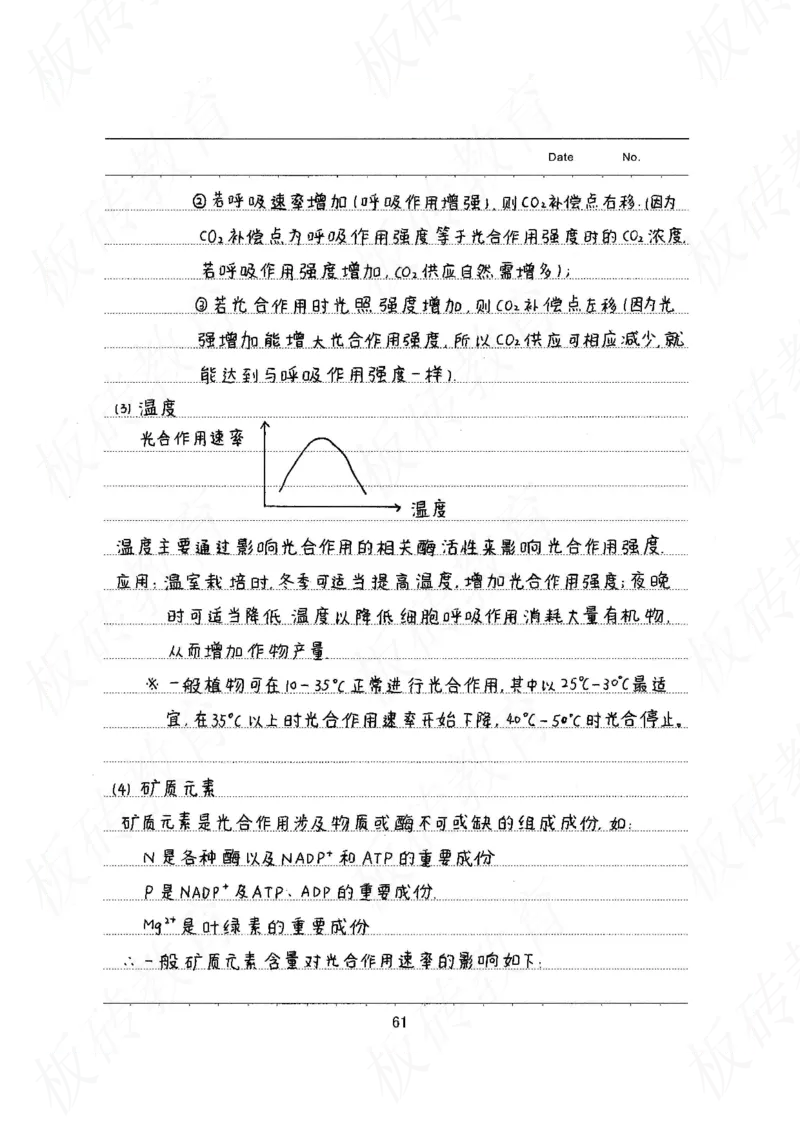 Date No.
②若呼吸速率增加(呼吸作用增强),则CO₂补偿点右移.(因为
CO₂补偿点为呼吸作用强度等于光合作用强度时的CO₂浓度,
若呼吸作用强度增加,CO₂供应自然需增多);
③若光合作用时光照强度增加,则CO₂补偿点左移(因为光
强增加能增大光合作用强度,所以CO₂供应可相应减少,就
能达到与呼吸作用强度一样).
(3)温度
光合作用速率
温度
温度主要通过影响光合作用的相关酶活性来影响光合作用强度.
应用:温室栽培时,冬季可适当提高温度,增加光合作用强度;夜晚
时可适当降低温度以降低细胞呼吸作用消耗大量有机物,
从而增加作物产量.
※一般植物可在10-35℃正常进行光合作用,其中以25℃-30℃最适
宜,在35℃以上时光合作用速率开始下降,40℃-50℃时光合停止。
(4)矿质元素
矿质元素是光合作用涉及物质或酶不可或缺的组成成份,如:
N是各种酶以及NADP⁺和ATP的重要成份
P是NADP⁺及ATP、ADP的重要成份.
Mg²⁺是叶绿素的重要成份
∴一般矿质元素含量对光合作用速率的影响如下:
61
板砖教育